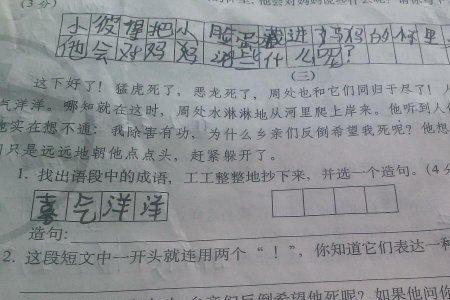 (3 分)
他会对妈妈说些什么呢?
小 把小脸蛋藏进了妈妈的怀里
他会对妈妈说些什么呢?
(三)
这下好了!猛虎死了,恶龙死了,周处也和它们同归于尽了!人
气洋洋。哪知就在这时,周处水淋淋地从河里爬上岸来。他听到人们
他实在想不通:我除害有功,为什么乡亲们反倒希望我死呢?他想
们只是远远地朝他点点头,赶紧躲开了。
1. 找出语段中的成语,工工整整地抄下来,并选一个造句。(4分
喜气洋洋
造句:
2. 这段短文中一开头就连用两个“!”,你知道它们表达一种
乡亲们反倒希望他死呢?如果他问你